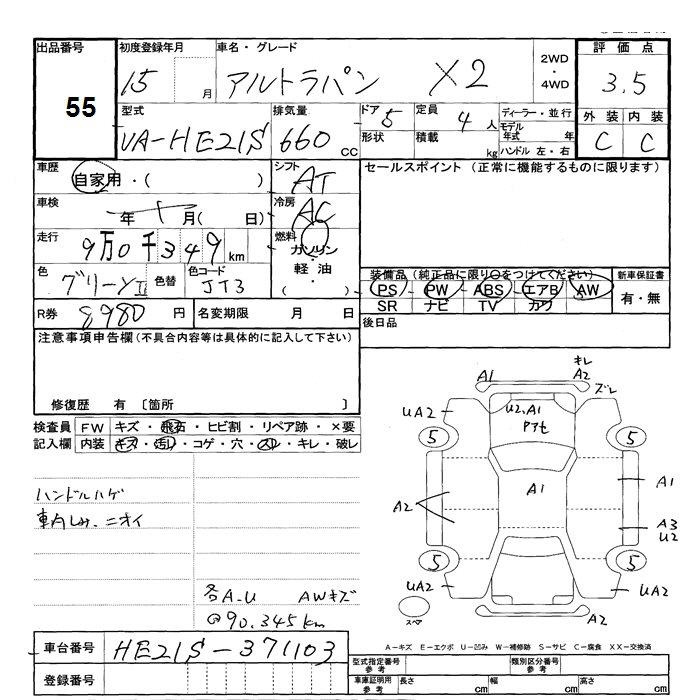 出品番号
55
初度登録年月
15 月
車名・グレード
アルトラパン X2
2WD
・
4WD
評価点
3.5
外装 内装
C C
型式
UA-HE21S
排気量
660 cc
ドア 5
形状
定員 4 人
積載 kg
ディーラー・並行
モデル年式 年
ハンドル 左・右
車歴
自家用・( )
シフト
AT
セールスポイント (正常に機能するものに限ります)
車検
年 月( 日)
冷房
AC
走行
9万0千349km
燃料
ガソリン
・
軽油
・
( )
色
グリーンⅡ
色替
色コード
JT3
装備品 (純正品に限り○をつけてください)
PS PW ABS エアB AW
SR ナビ TV カワ
新車保証書
有・無
R券 8980 円
名変期限 月 日
後日品
注意事項申告欄(不具合内容等は具体的に記入して下さい)
修復歴 有 〔箇所 〕
検査員
記入欄
FW キズ・飛石・ヒビ割・リペア跡・×要
内装 キズ・汚レ・コゲ・穴・スレ・キレ・破レ
ハンドルハゲ
車内しみ、ニオイ
各A-U AWキズ
@90.345km
キレ
A1 A2
ズレ
UA2
U2.A1
アセ
UA2
5 5
A1
A1
A2
A3
U2
5 5
UA2 UA2
スペア
A2
A-キズ E-エクボ U-凹み W-補修跡 S-サビ C-腐食 XX-交換済
車台番号 HE21S-371103
登録番号
型式指定番号
参考
類別区分番号
参考
車庫証明用
参考
長さ cm
幅 cm
高さ cm